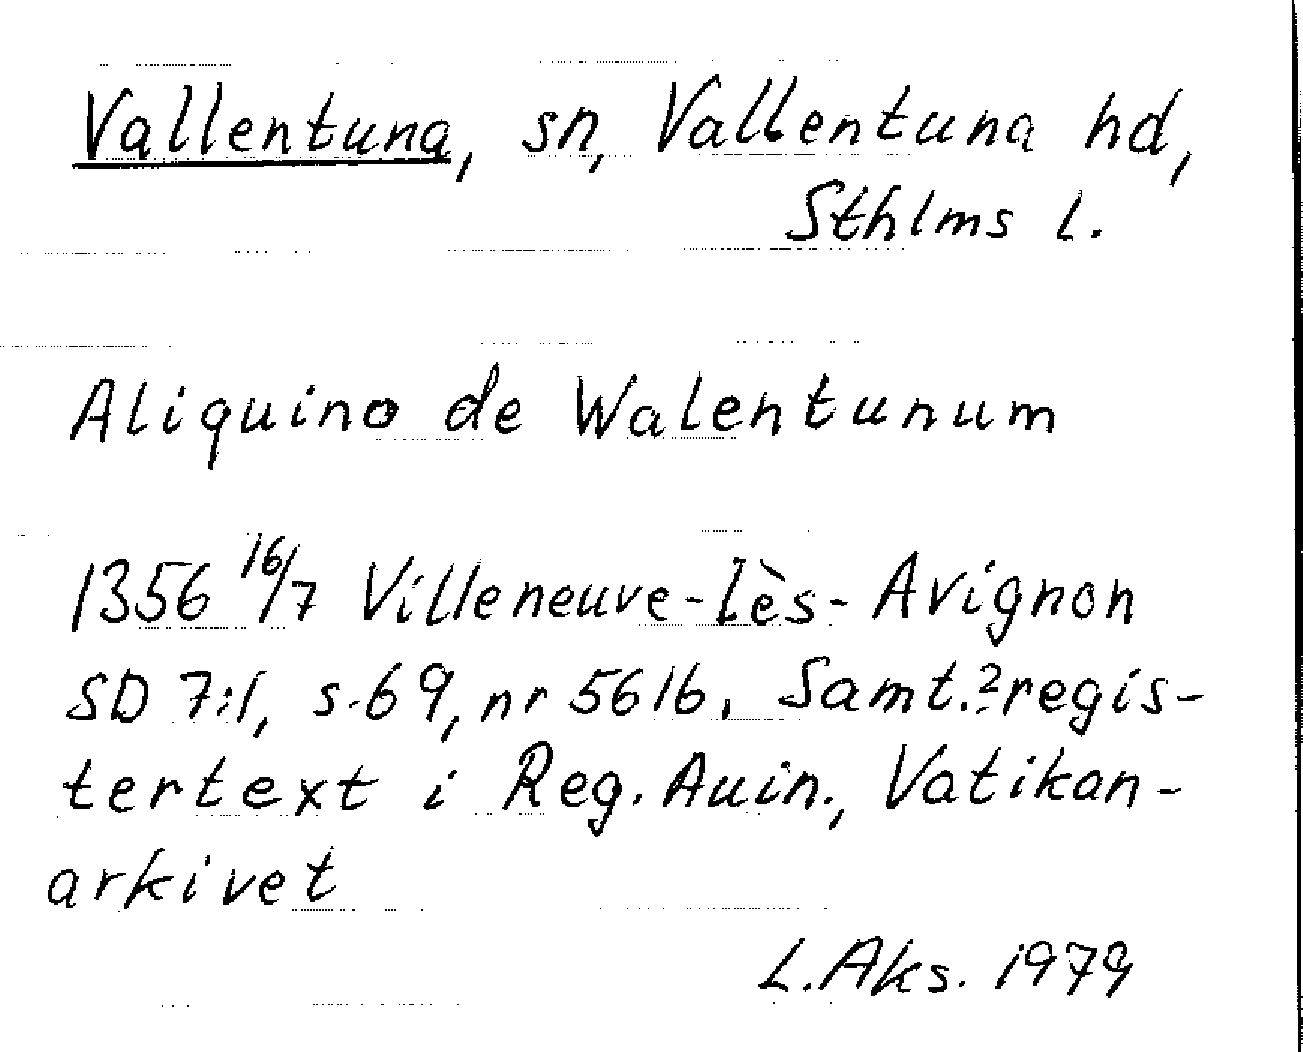 Vallentuna, sn, Vallentuna hd,
Sthlms l.
Aliquino de Walentunum
1356 16/7 Villeneuve-lès-Avignon
SD 7:1, s.69, nr 5616. Samt.? regis-
tertext i Reg. Auin., Vatikan-
arkivet
L.Aks. 1979